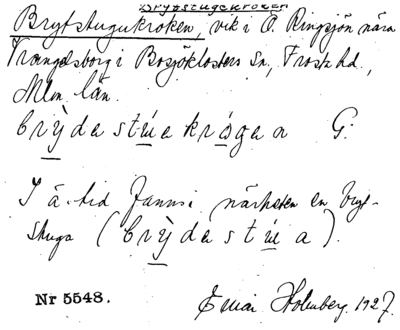 Brytstugekroken
Brytstugukroken, vik i Ö. Ringsjön nära
Trangelsborg i Bosjöklosters Sn, Frosta hd.,
Mlm. län.
brỳdastúakrógen G:
I ä. tid fanns i närheten en bryt-
stuga (brỳdastúa).
Nr 5548. Einar Holmberg. 1927.